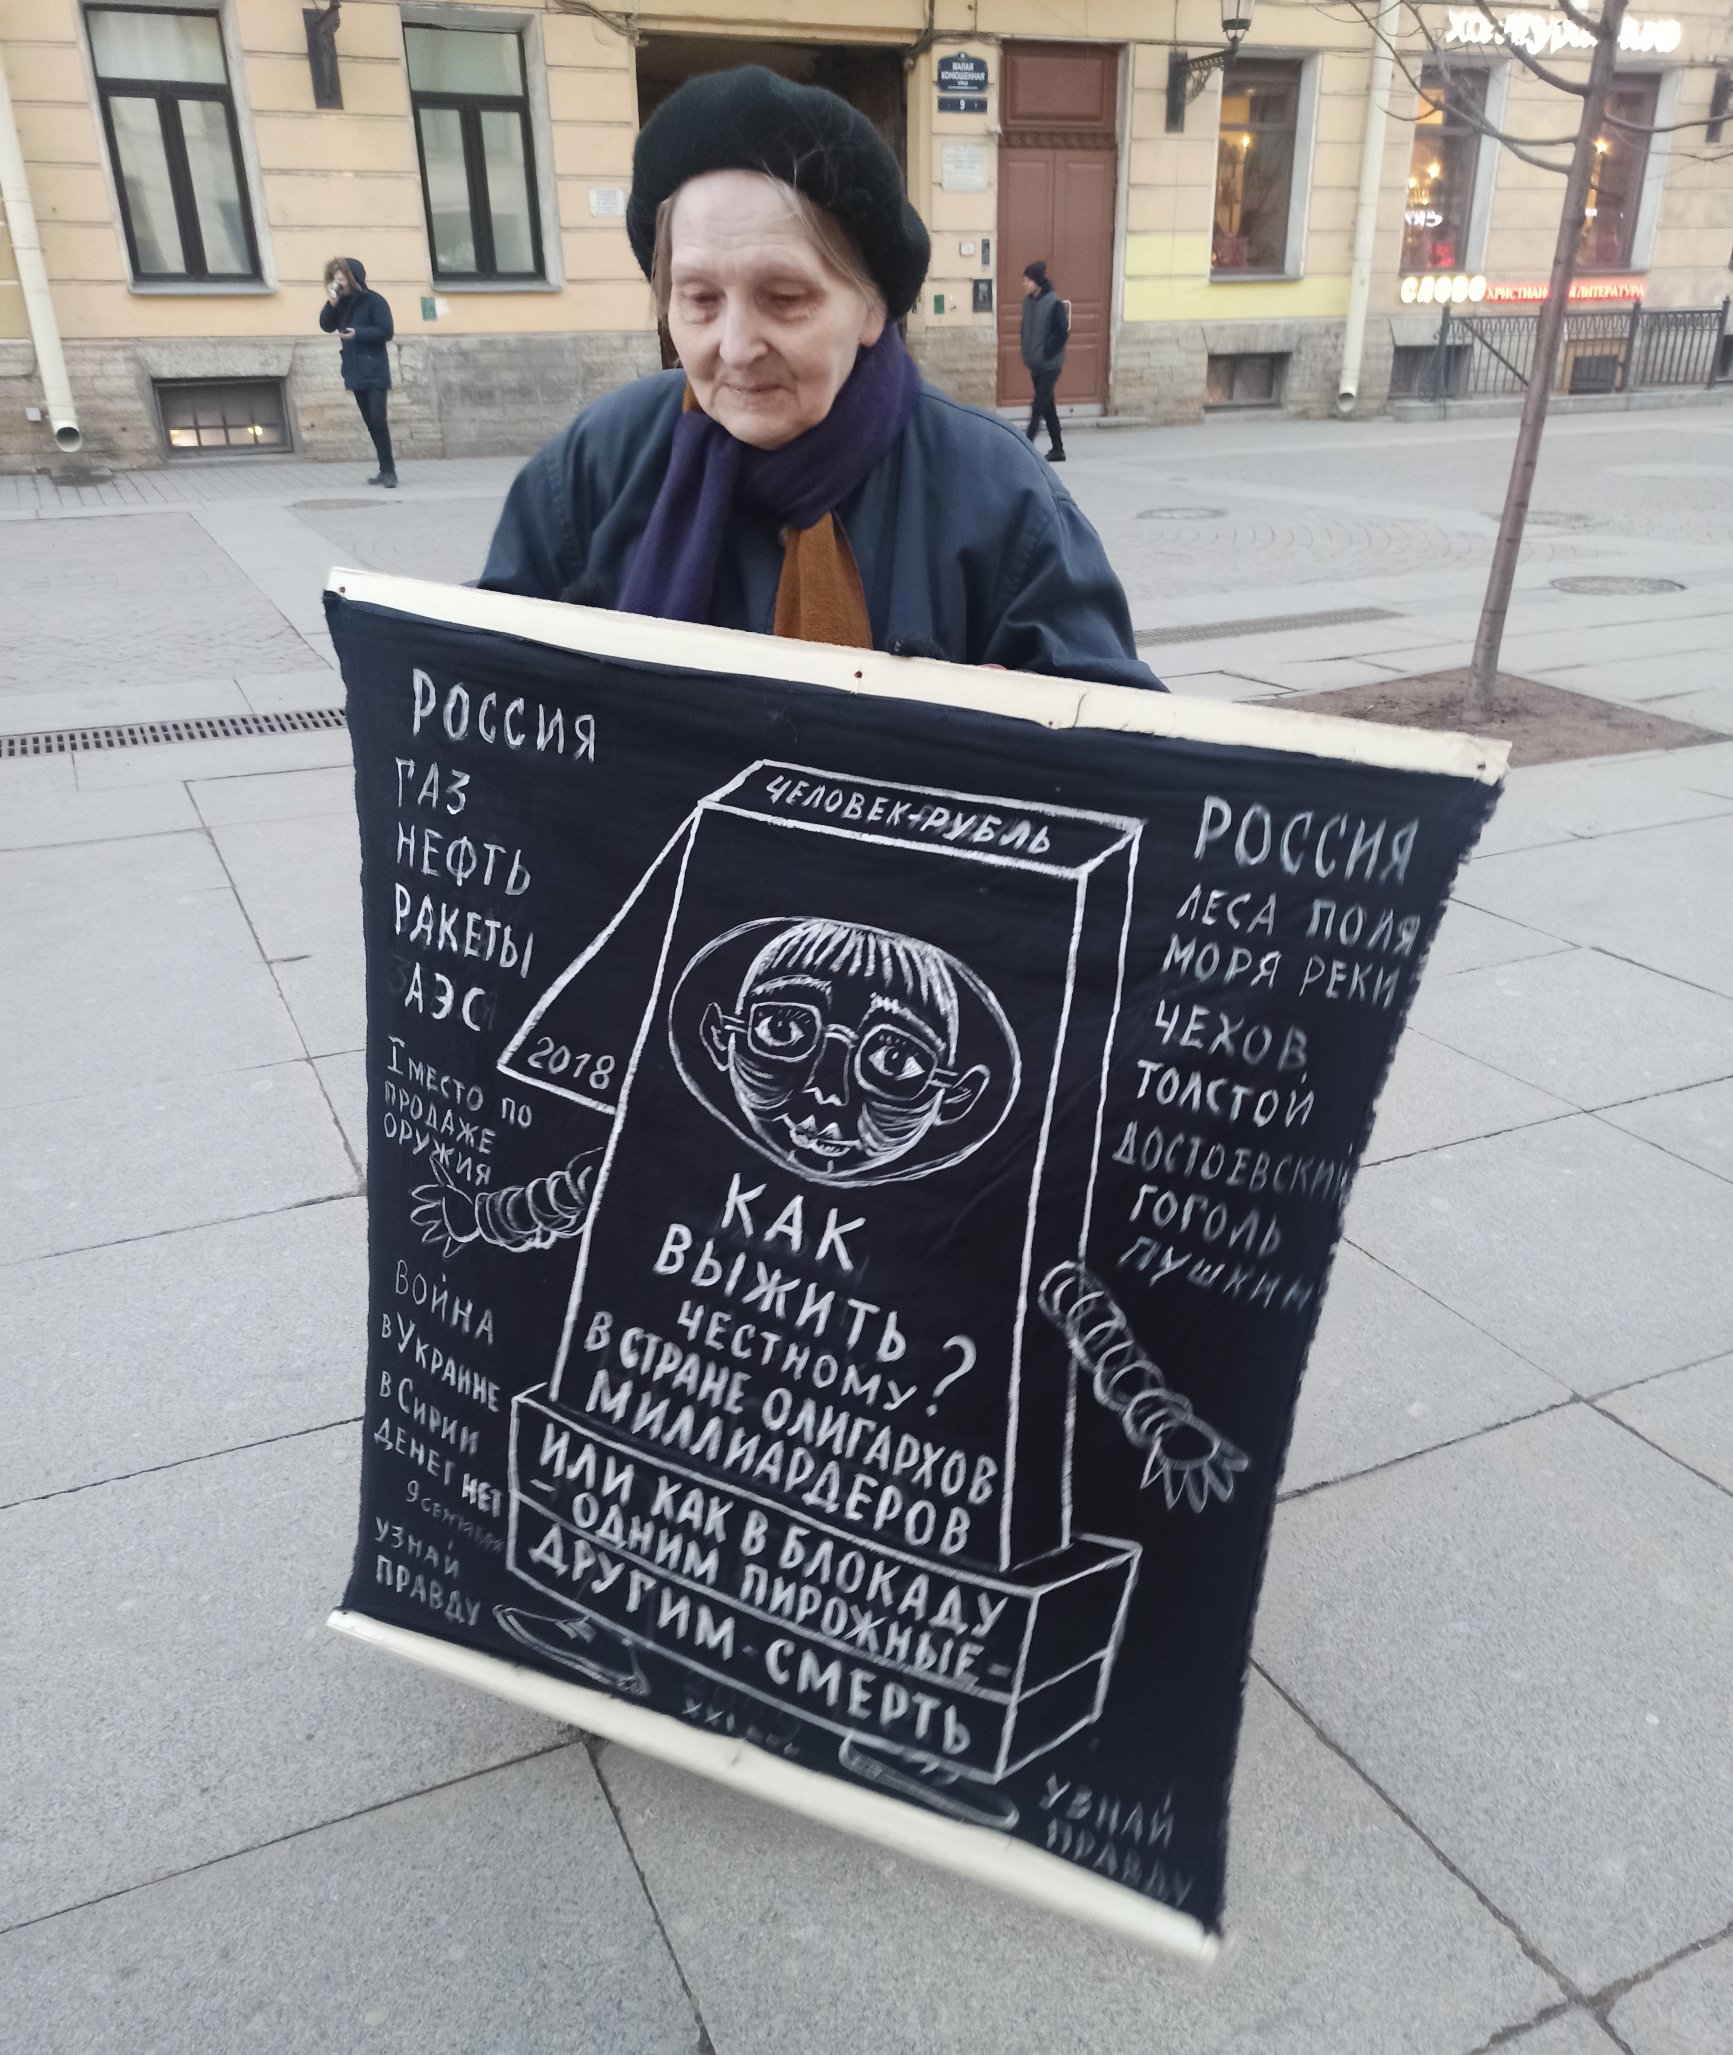 МАЛАЯ
КОНЮШЕННАЯ
9
СЛОВО
ХРИСТИАНСКАЯ ЛИТЕРАТУРА
РОССИЯ
ГАЗ
НЕФТЬ
РАКЕТЫ
АЭС
I МЕСТО ПО
ПРОДАЖЕ
ОРУЖИЯ
ВОЙНА
В УКРАИНЕ
В СИРИИ
ДЕНЕГ НЕТ
9 сентября
УЗНАЙ
ПРАВДУ
ЧЕЛОВЕК-РУБЛЬ
2018
КАК
ВЫЖИТЬ
ЧЕСТНОМУ?
В СТРАНЕ ОЛИГАРХОВ
МИЛЛИАРДЕРОВ
ИЛИ КАК В БЛОКАДУ
– ОДНИМ ПИРОЖНЫЕ –
ДРУГИМ - СМЕРТЬ
РОССИЯ
ЛЕСА ПОЛЯ
МОРЯ РЕКИ
ЧЕХОВ
ТОЛСТОЙ
ДОСТОЕВСКИЙ
ГОГОЛЬ
ПУШКИН
УЗНАЙ
ПРАВДУ